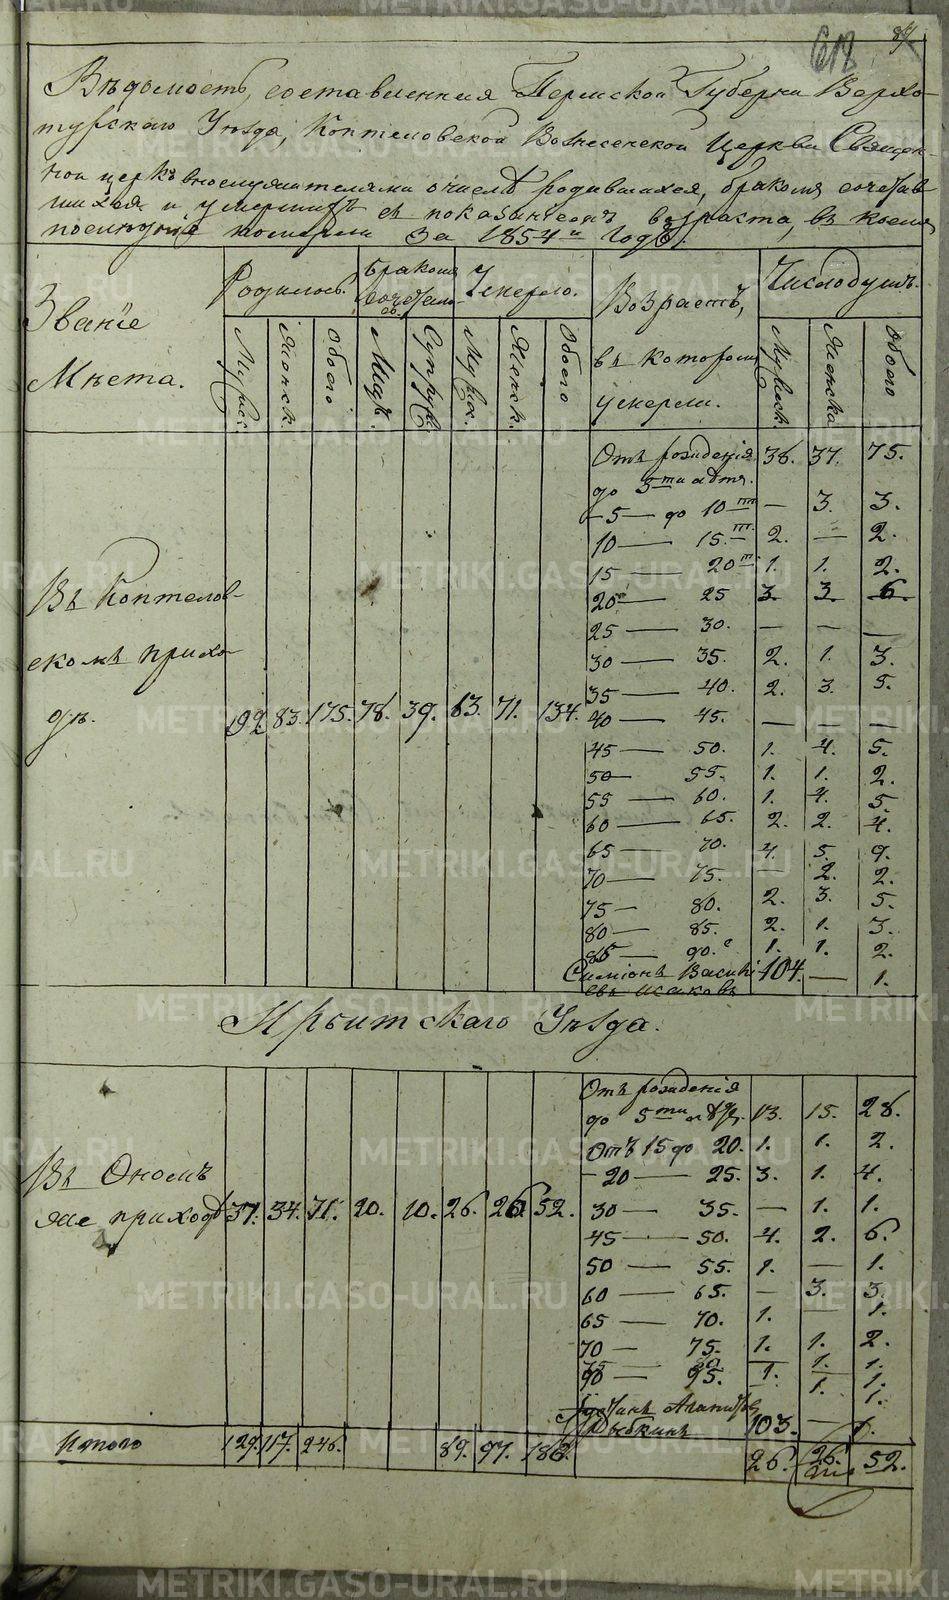 Вѣдомость, составленная Пермской Губерніи Верхо-
турскаго Уѣзда, Коптеловской Вознесенской Церкви Священ-
но и церковнослужителями о числѣ родившихся, бракомъ сочетав
шихся и умершихъ съ показаніемъ возраста, въ коемъ
померли За 1854й годъ.
Званіе
Мѣста.
Родилось.
Бракомъ
сочетало
сь.
Умерло.
Возрастъ,
въ которомъ
умерли.
Число душъ.
Мужс.
Женск.
Обоего
Муж.
Супруж.
Мужск.
Женск.
Обоего
Мужеск.
Женска
Обоего
Въ Коптелов-
скомъ прихо-
дѣ.
92. 83. 175. 78. 39. 63. 71. 134.
Отъ рожденія 36. 37. 75.
до 5ти лѣтъ.
— 5 — до 10ти — 3. 3.
10 — 15. 2. — 2.
15 — 20 1. 1. 2.
20 — 25 3. 3. 6.
25 — 30. — — —
30 — 35. 2. 1. 3.
35 — 40. 2. 3. 5.
40 — 45. — — —
45 — 50. 1. 4. 5.
50 — 55. 1. 1. 2.
55 — 60. 1. 4. 5.
60 — 65. 2. 2. 4.
65 — 70. 4. 5. 9.
70 — 75. — 2. 2.
75 — 80. 2. 3. 5.
80 — 85. 2. 1. 3.
85 — 90. 1. 1. 2.
Симіонъ Василі 104. — 1.
евъ Исаковъ
Ирбитскаго Уѣзда.
Въ Ономъ
же приходѣ
37. 34. 71. 20. 10. 26. 26. 52.
Отъ рожденія
до 5ти лѣтъ. 13. 15. 28.
Отъ 15 до 20. 1. 1. 2.
— 20 — 25. 3. 1. 4.
30 — 35. — 1. 1.
45 — 50. 4. 2. 6.
50 — 55. 1. — 1.
60 — 65. — 3. 3.
65 — 70. 1. — 1.
70 — 75. 1. 1. 2.
75 — 80. — 1. 1.
90 — 95. 1. 1. 1.
1.
Рыбкинъ 103. — 1.
Итого 129. 117. 246. 89. 97. 186. 26. 26. 52.
METRIKI.GASO-URAL.RU